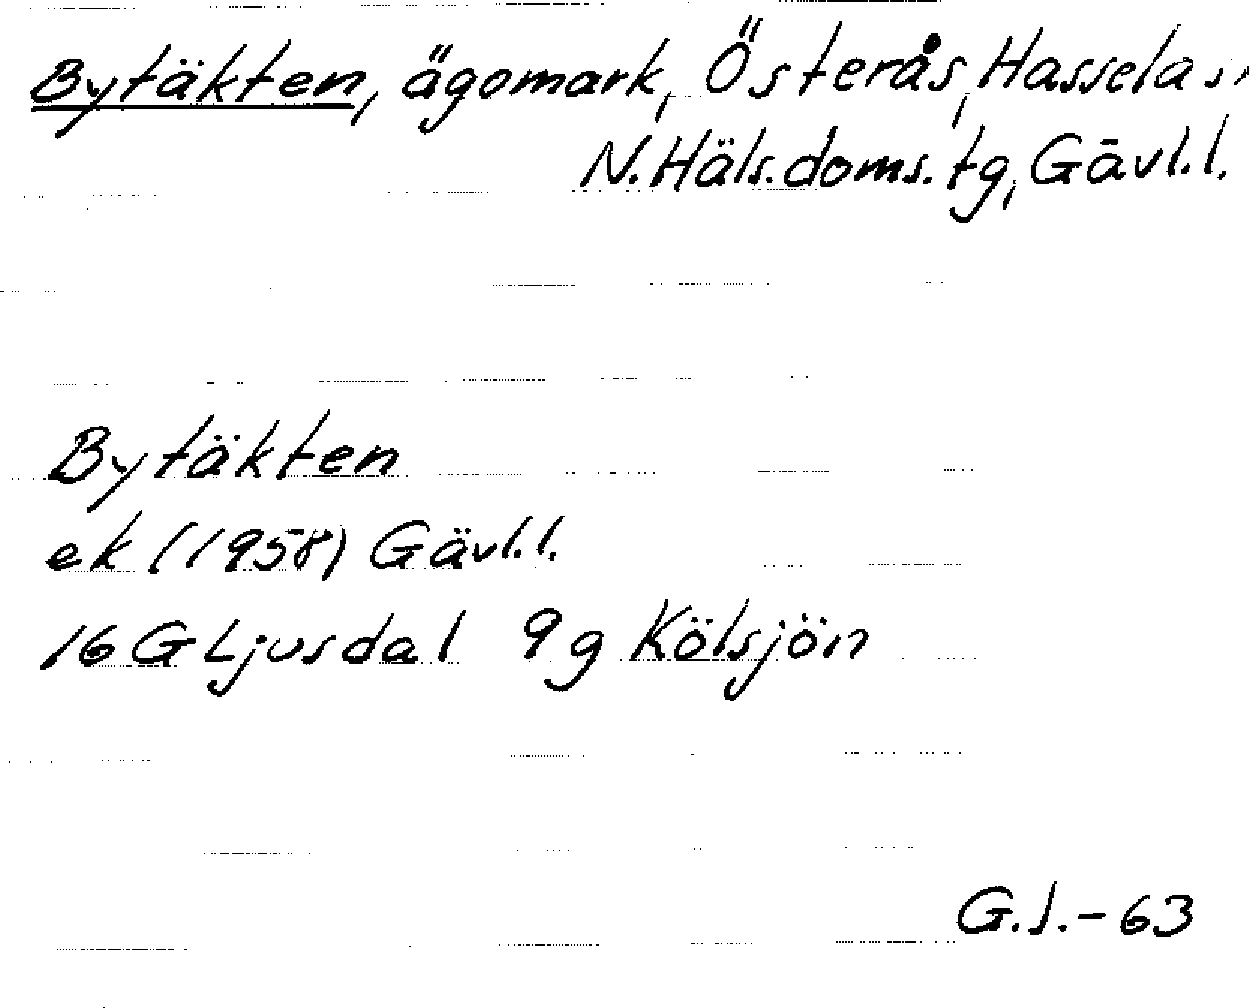 Bytäkten, ägomark, Österås, Hassela s,
N. Häls. doms. tg, Gävl. l.
Bytäkten
ek (1958) Gävl. l.
16 G Ljusdal 9g Kölsjön
G.J.-63